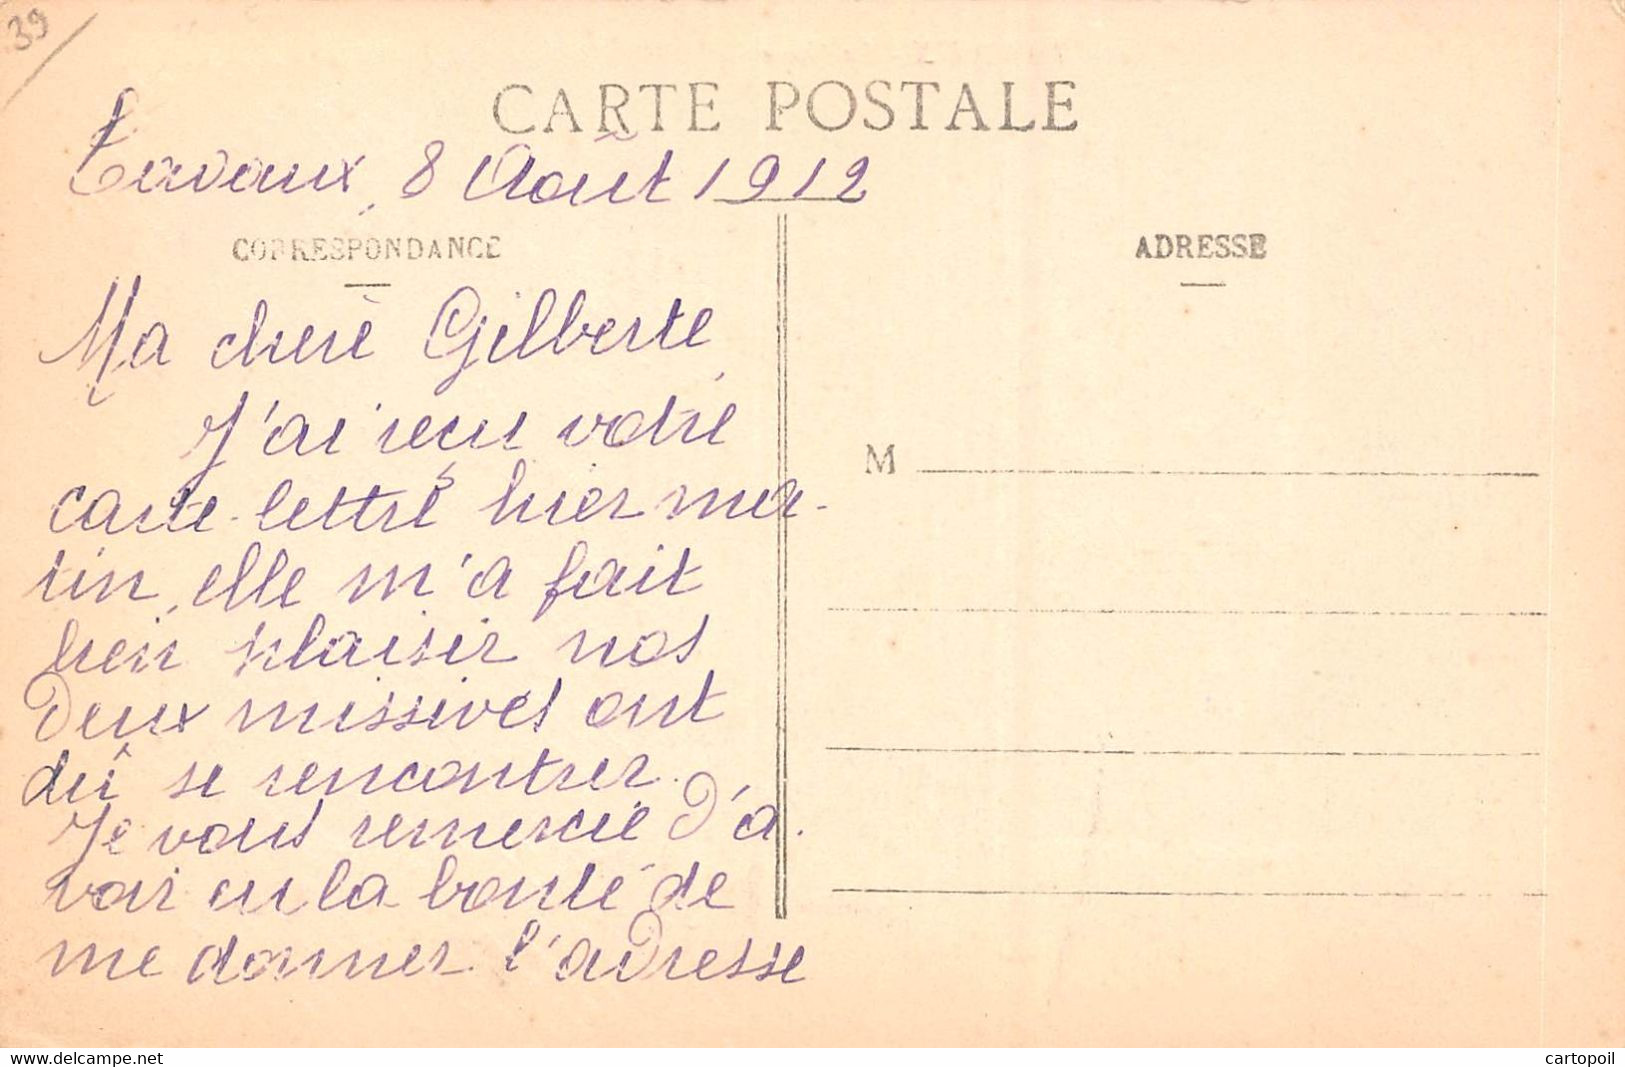 39
CARTE POSTALE
Tavaux, 8 Août 1912
CORRESPONDANCE
ADRESSE
Ma chere Gilberte,
J'ai reçu votre
carte-lettre hier ma-
tin, elle m'a fait
bien plaisir nos
deux missives ont
dû se rencontrer.
Je vous remercie d'a-
voir eu la bonté de
me donner l'adresse
M
cartopoil
delcampe.net